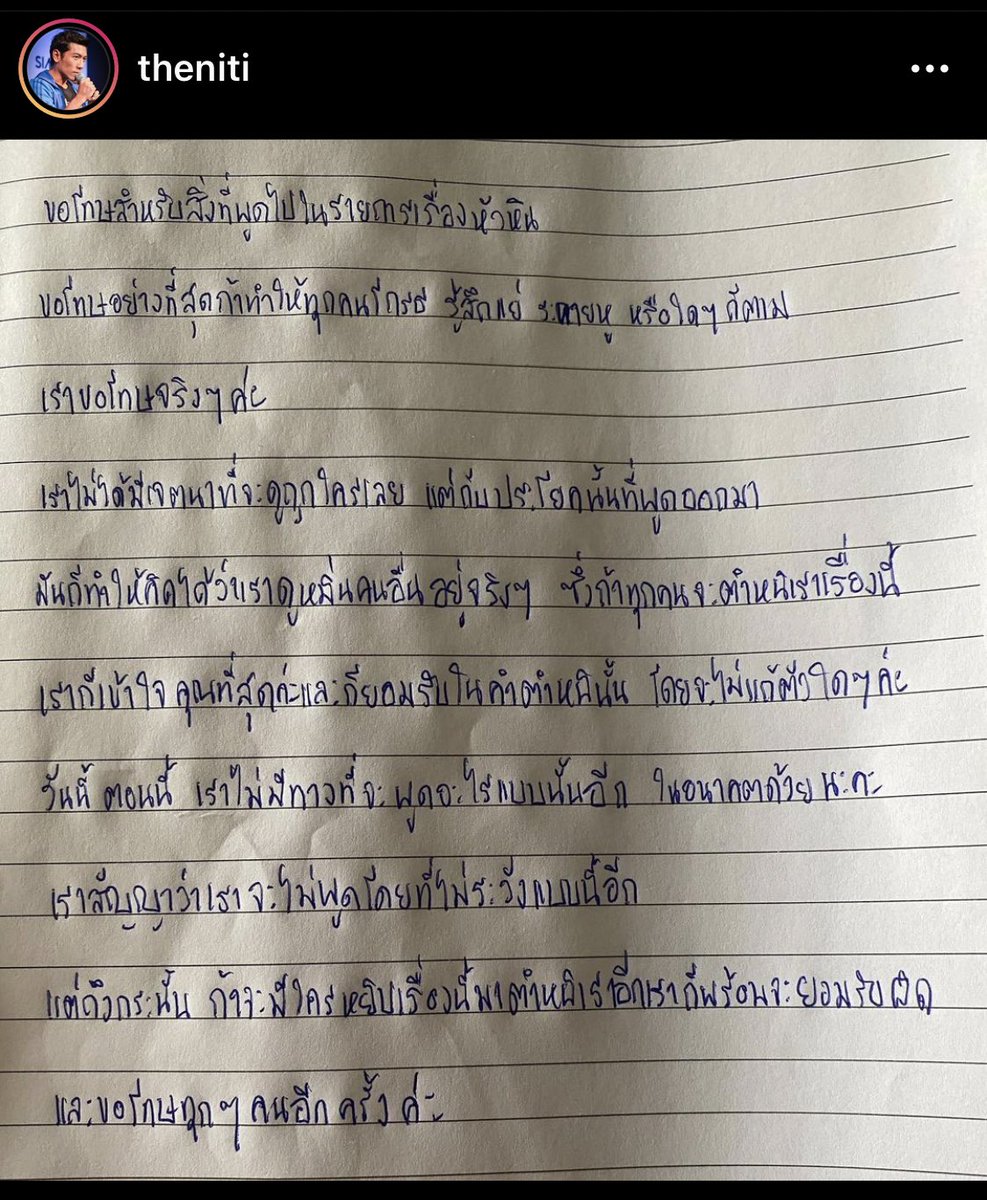 theniti
ขอโทษสำหรับสิ่งที่พูดไปในรายการเรื่องหัวหิน
ขอโทษอย่างที่สุดถ้าทำให้ทุกคนโกรธ รู้สึกแย่ ระคายหู หรือใดๆ ก็ตาม
เราขอโทษจริงๆ ค่ะ
เราไม่ได้มีเจตนาที่จะดูถูกใครเลย แต่กับประโยคนั้นที่พูดออกมา
มันก็ทำให้คิดได้ว่าเราดูหมิ่นคนอื่นอยู่จริงๆ ซึ่งถ้าทุกคนจะตำหนิเราเรื่องนี้
เราก็เข้าใจคุณที่สุดค่ะและก็ยอมรับในคำตำหนินั้น โดยจะไม่แก้ตัวใดๆ ค่ะ
วันนี้ ตอนนี้ เราไม่มีทางที่จะพูดอะไรแบบนั้นอีก ในอนาคตด้วยนะคะ
เราสัญญาว่าเราจะไม่พูดโดยที่ไม่ระวังแบบนี้อีก
แต่ถึงกระนั้น ถ้าจะมีใครหยิบเรื่องนี้มาตำหนิเราอีกเราก็พร้อมจะยอมรับผิด
และขอโทษทุกๆ คนอีกครั้งค่ะ